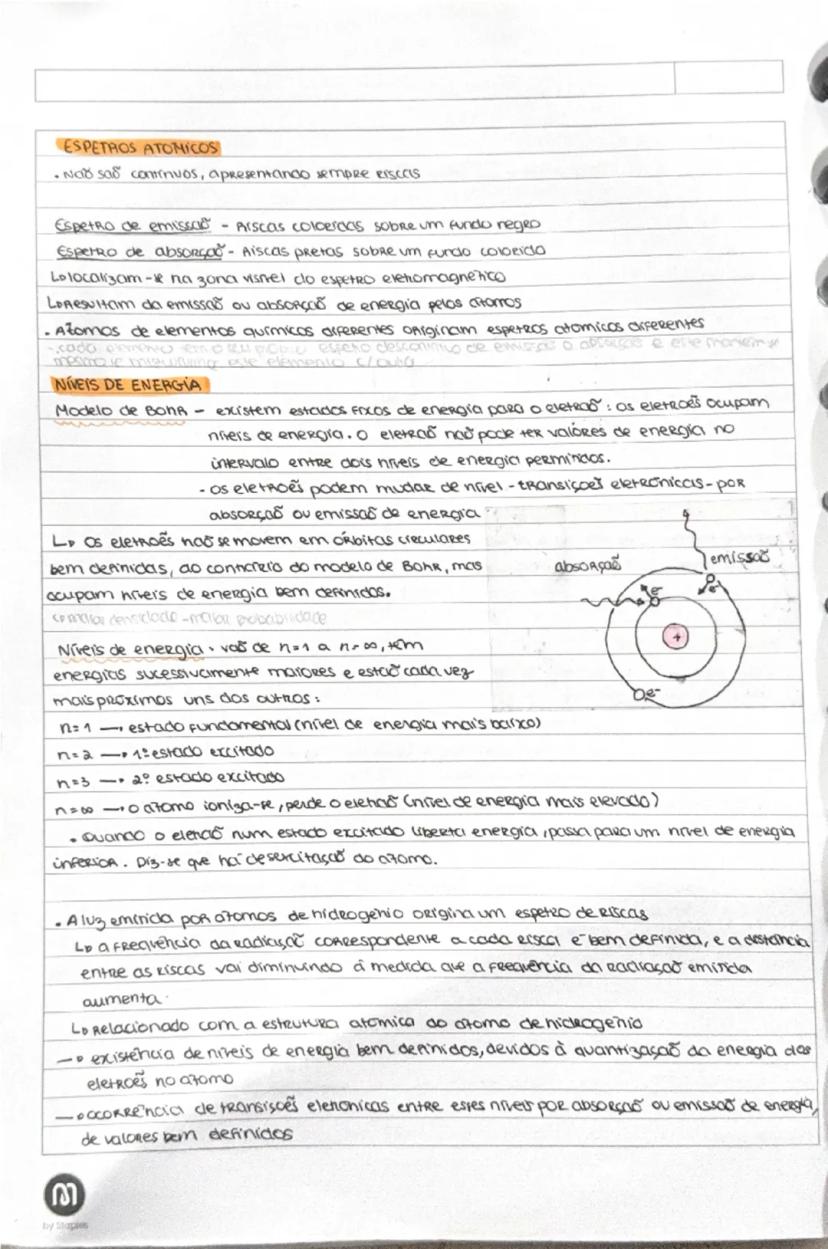 ESPETROS ATOMICOS
• Não são contínuos, apresentando sempre riscas
Espetro de emissão - Riscas coloridas sobre um fundo negro
Espetro de absorção - Riscas pretas sobre um fundo colorido
↳ localizam-se na zona visível do espetro eletromagnético
↳ Resultam da emissão ou absorção de energia pelos átomos
• Átomos de elementos químicos diferentes originam espetros atomicos diferentes
- cada elemento tem o seu próprio espetro descontínuo de emissão o absorção e este
mesmo se este elemento c/ outro
NÍVEIS DE ENERGIA
Modelo de BOHR - existem estados fixos de energia para o eletrão : os eletrões ocupam
níveis de energia. O eletrão não pode ter valores de energia no
intervalo entre dois níveis de energia permitidos.
- os eletrões podem mudar de nível - transições eletrónicas - por
absorção ou emissão de energia
↳ Os eletrões não se movem em órbitas circulares
bem definidas, ao contrário do modelo de BOHR, mas
ocupam níveis de energia bem definidos.
absorção
emissão
e⁻
e⁻
+
e⁻
densidade - maior probabilidade
Níveis de energia • vão de n=1 a n=∞, têm
energias sucessivamente maiores e estão cada vez
mais próximos uns dos outros :
n=1 → estado fundamental (nível de energia mais baixo)
n=2 → 1º estado excitado
n=3 → 2º estado excitado
n=∞ → o átomo ioniza-se, perde o eletrão (nível de energia mais elevado)
• Quando o eletrão num estado excitado liberta energia, passa para um nível de energia
inferior. Diz-se que há desexcitação do átomo.
• A luz emitida por átomos de hidrogénio origina um espetro de riscas
↳ a frequência da radiação correspondente a cada risca é bem definida, e a distância
entre as riscas vai diminuindo à medida que a frequência da radiação emitida
aumenta.
↳ Relacionado com a estrutura atomica do átomo de hidrogénio
→ existência de níveis de energia bem definidos, devidos à quantização da energia dos
eletrões no átomo
→ ocorrência de transisões eletronicas entre estes níveis por absorção ou emissão de energia,
de valores bem definidos
by Staples